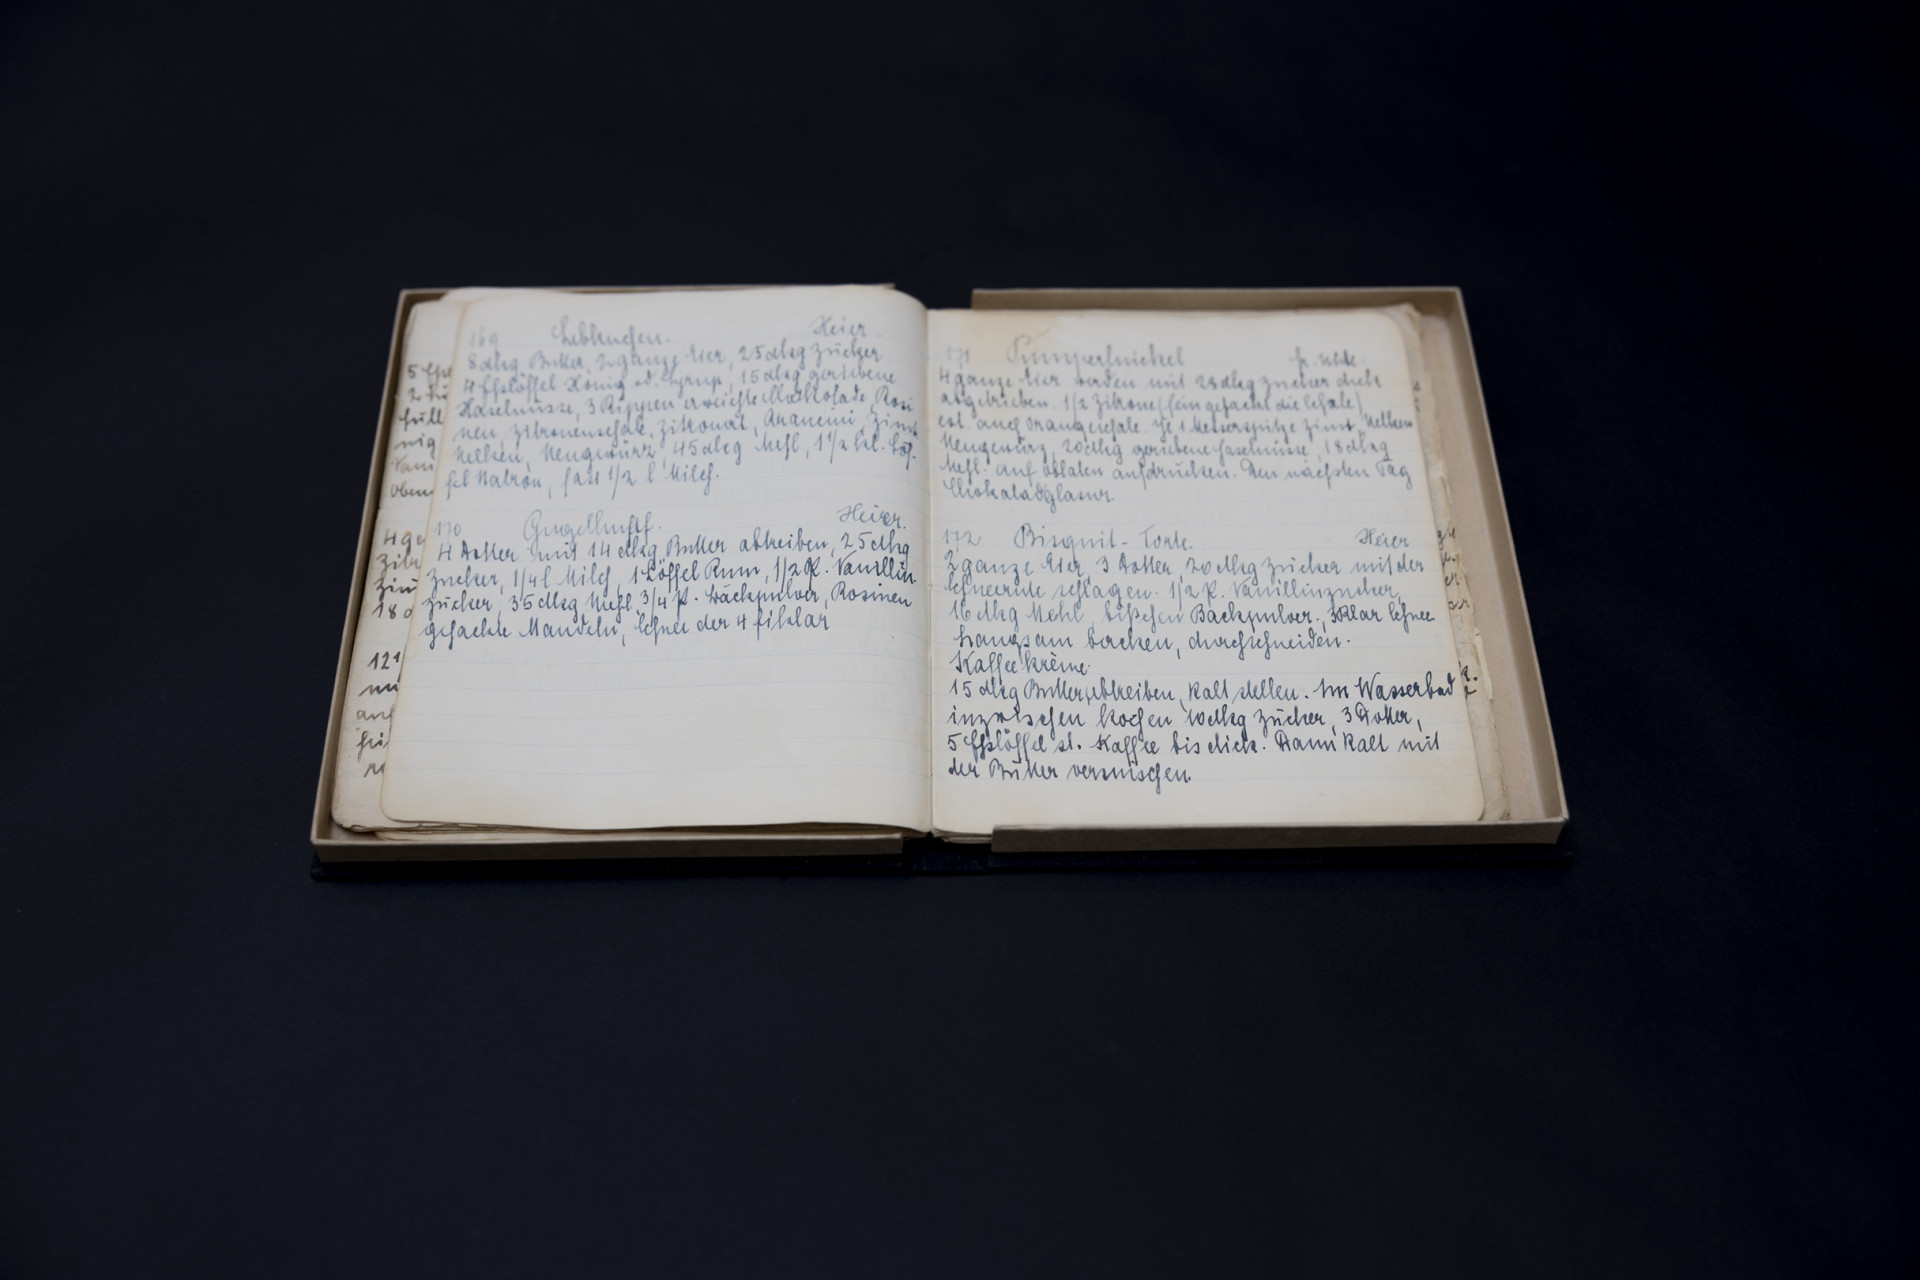 169 Lebkuchen. Heier
8 dkg Butter, 2 ganze Eier, 25 dkg Zucker
4 Esslöffel Honig od. Syrup, 15 dkg geriebene
Haselnüsse, 3 Rippen erweichte Chockolade, Rosi
nen, Zitronenschale, Zitronat, Arancini, Zimt
Nelken, Neugewürz, 45 dkg Mehl, 1 1/2 Löf-
fel Natron, fast 1/2 l Milch.
170 Gugelhupf. Heier.
4 Dotter mit 14 dkg Butter abtreiben, 25 dkg
Zucker, 1/4 l Milch, 1 Löffel Rum, 1/2 P. Vanillin-
zucker, 35 dkg Mehl, 3/4 P. Backpulver, Rosinen
gehackte Mandeln, Schnee der 4 Eiklar
171 Pumpernickel
4 ganze Eier werden mit 28 dkg Zucker dick
abgetrieben. 1/2 Zitrone (fein gehackt die Schale)
est. auch Orangenschale. Je 1 Messerspitze Zimt, Nelken
Neugewürz, 20 dkg geriebene Haselnüsse, 18 dkg
Mehl. Auf Oblaten aufdrücken. Den nächsten Tag
Chokoladglasur.
172 Bisquit-Torte. Heier
2 ganze Eier, 3 Dotter, 20 dkg Zucker mit der
Schneerute schlagen. 1/2 P. Vanillinzucker,
16 dkg Mehl, bißchen Backpulver, 3 Klar Schnee
Langsam backen, durchschneiden.
Kaffeekrème.
15 dkg Butter abtreiben, kalt stellen. Im Wasserbad
inzwischen kochen 10 dkg Zucker, 3 Dotter,
5 Esslöffel st. Kaffee bis dick. Dann kalt mit
der Butter vermischen.